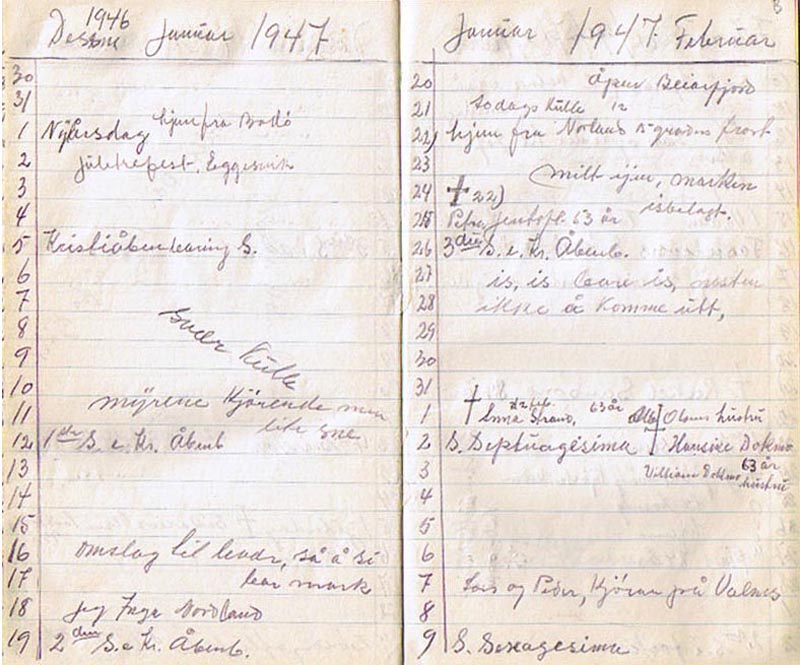 1946
Januar 1947
30
31
1 Nyårsdag hjem fra Bodö
2 juletrefest, Eggesvik
3
4
5 Kristiåbenbaring S.
6
7
8 kulle
9
10
11 myrene kjörende men
lite sne
12 1ste S. e Kr. Åbenb
13
14
15
16 omslag til levdr, så å si
17 bar mark
18 jeg Inga Nordland
19 2den S. e Kr. Åbenb.
Januar 1947 Februar
20 åpen Beiarfjord
21 todags kulle 12
22) hjem fra Norland 15 graders frost
23
24 † 22) milt igen, marken
isbelagt.
25 Petra 63 år
26 3die S. e. Kr. Åbenb.
27 is, is bare is, nesten
28 ikke å komme utt,
29
30
31
1 † Strand, 63 år † Olaus hustru
2 S. Septuagesima Hansine Dokmo
3 William Dokmo 63 år
hustru
4
5
6
7 og Peder, kjöran på Valnes
8
9 S. Sexagesima